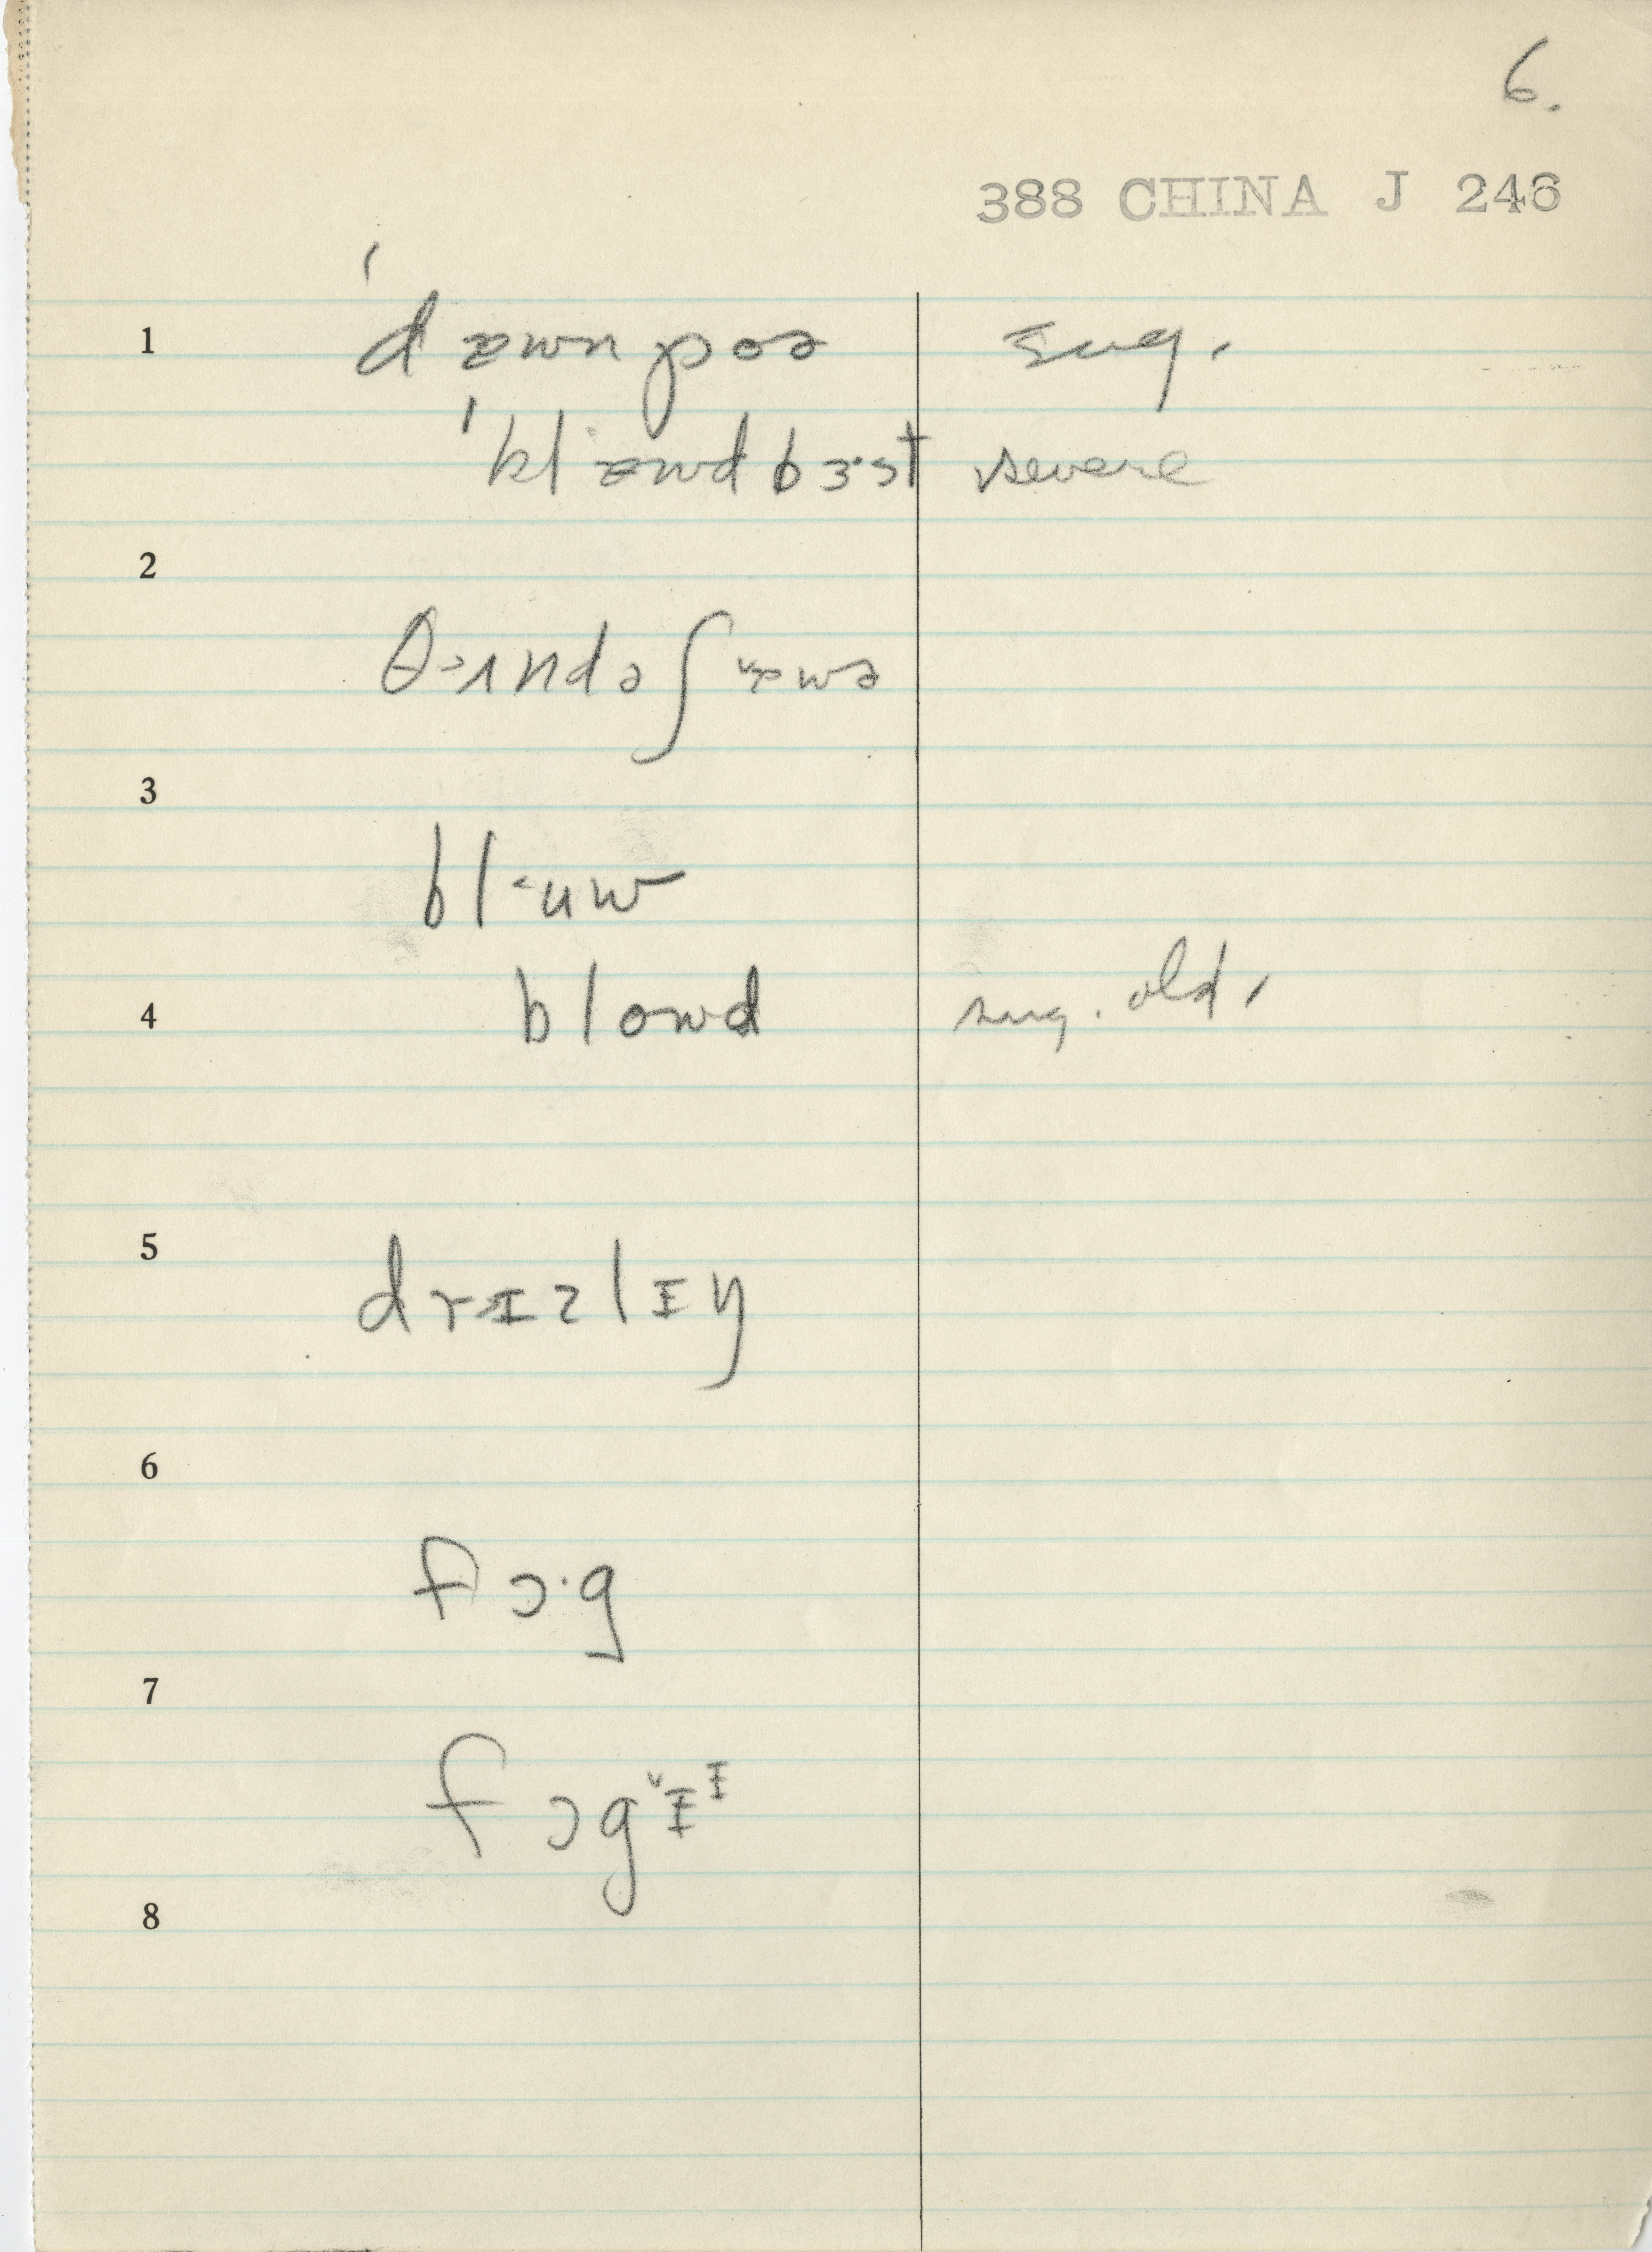 6.
388 CHINA J 246
1 ˈdæwnpoə sug.
ˈklæwdbɜst severe
2
θʌndəʃæwə
3
bluw
4 blowd sug. old.
5
drɪzlɪy
6
fɔ·g
7
fɔgˇɪᶦ
8